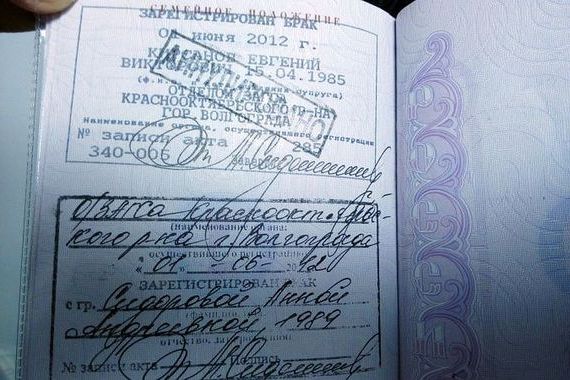 СЕМЕЙНОЕ ПОЛОЖЕНИЕ
ЗАРЕГИСТРИРОВАН БРАК
01 июня 2012 г.
ЕВГЕНИЙ
15.04.1985
ОТДЕЛОМ ЗАГСА
КРАСНООКТЯБРЬСКОГО Р-НА
ГОР. ВОЛГОГРАДА
Наименование органа, осуществившего регистрацию
№ записи акта 285
340-006
О/ЗАГСа Краснооктябрьс-
кого р-на г. Волгограда
(наименование органа,
осуществившего регистрацию)
"01" - 06 - 2012
ЗАРЕГИСТРИРОВАН БРАК
с гр. Сидоровой Анной
Андреевной, 1989
отчество, дата рожд.
№ записи акта Подпись